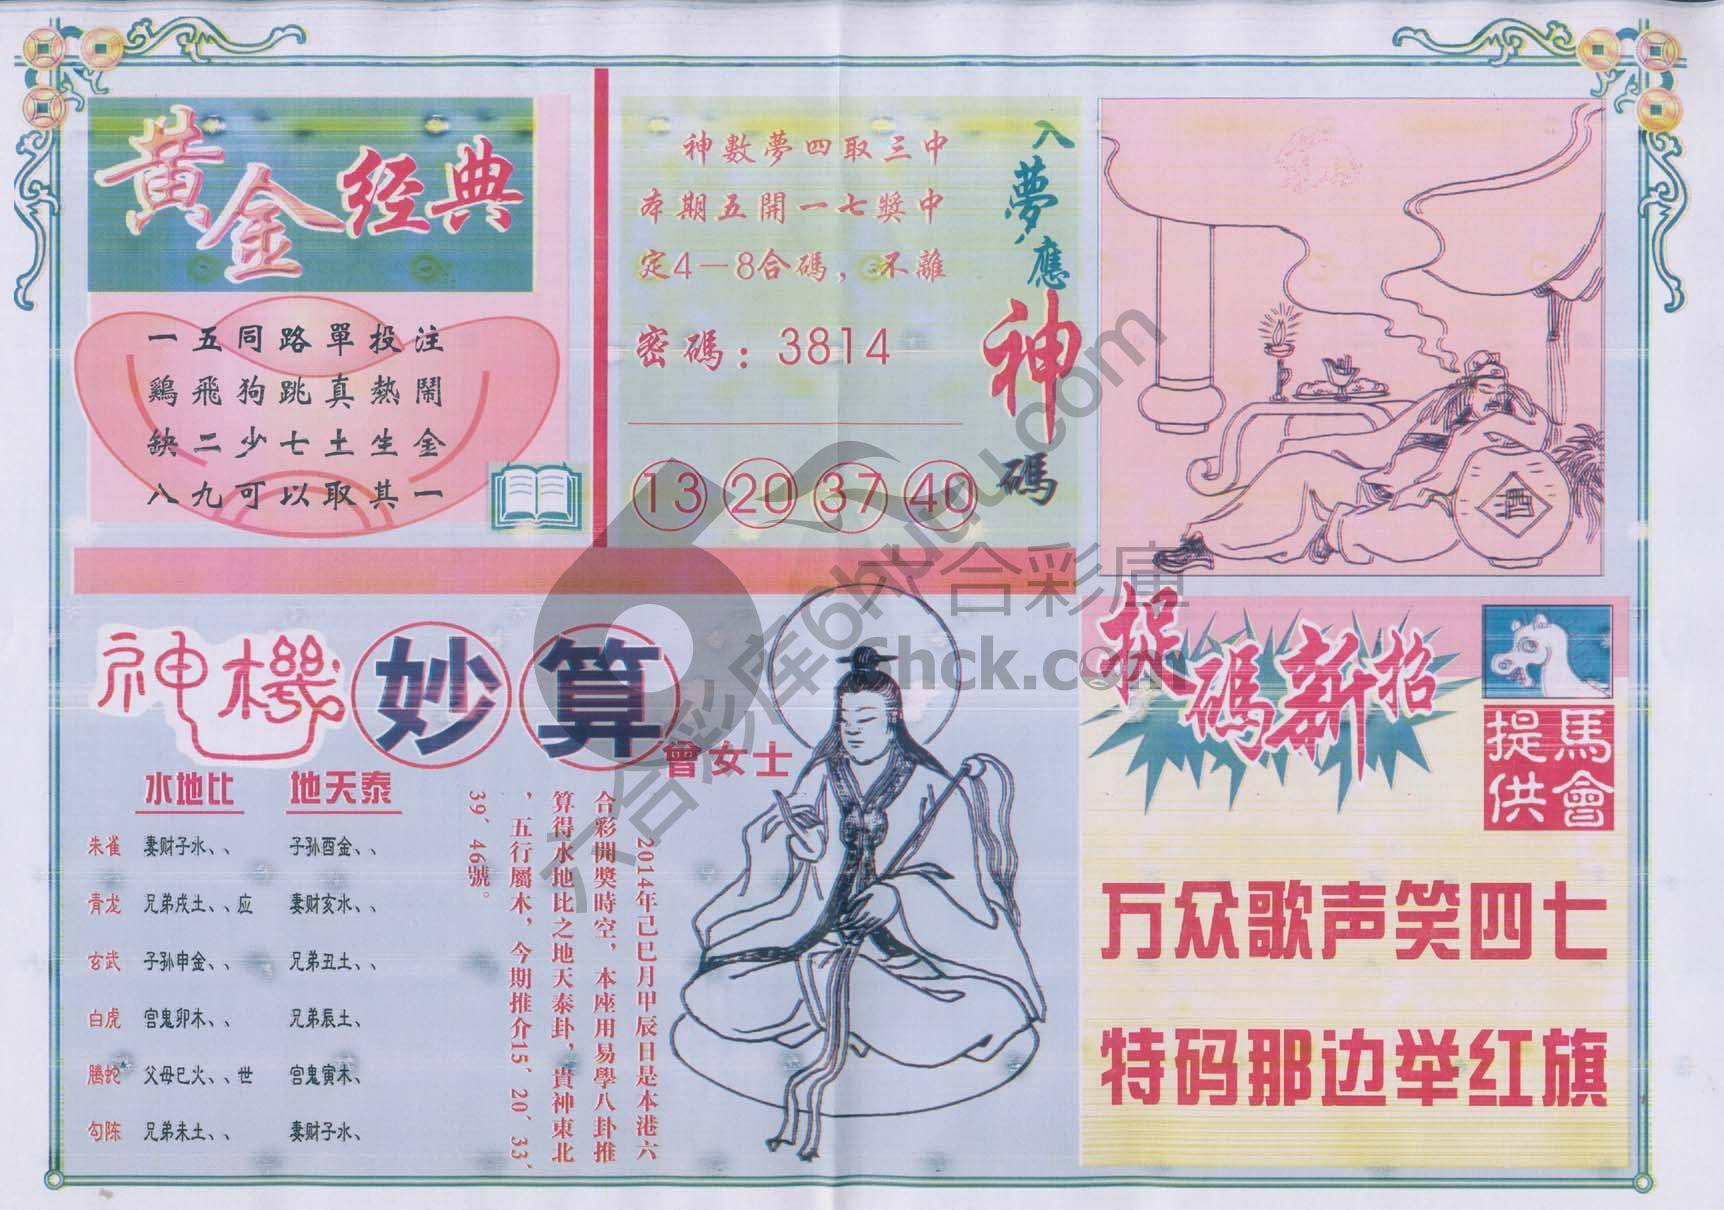 黄金经典
一五同路單投注
鷄飛狗跳真熱鬧
缺二少七土生金
八九可以取其一
入夢應神碼
神數夢四取三中
本期五開一七獎中
定4－8合碼，不離
密碼：3814
13 20 37 40
酒
神機妙算
曾女士
水地比 地天泰
朱雀 妻财子水、、 子孙酉金、、
青龙 兄弟戌土、、应 妻财亥水、、
玄武 子孙申金、、 兄弟丑土、、
白虎 官鬼卯木、、 兄弟辰土、
腾蛇 父母巳火、、世 官鬼寅木、
勾陈 兄弟未土、、 妻财子水、
2014年己巳月甲辰日是本港六
合彩開獎時空，本座用易學八卦推
算得水地比之地天泰卦，貴神東北
，五行屬木，今期推介15、20、33、
39、46號。
捉碼新招
馬會
提供
万众歌声笑四七
特码那边举红旗
六合彩庫
6hck.com
六合彩库6htuku.com